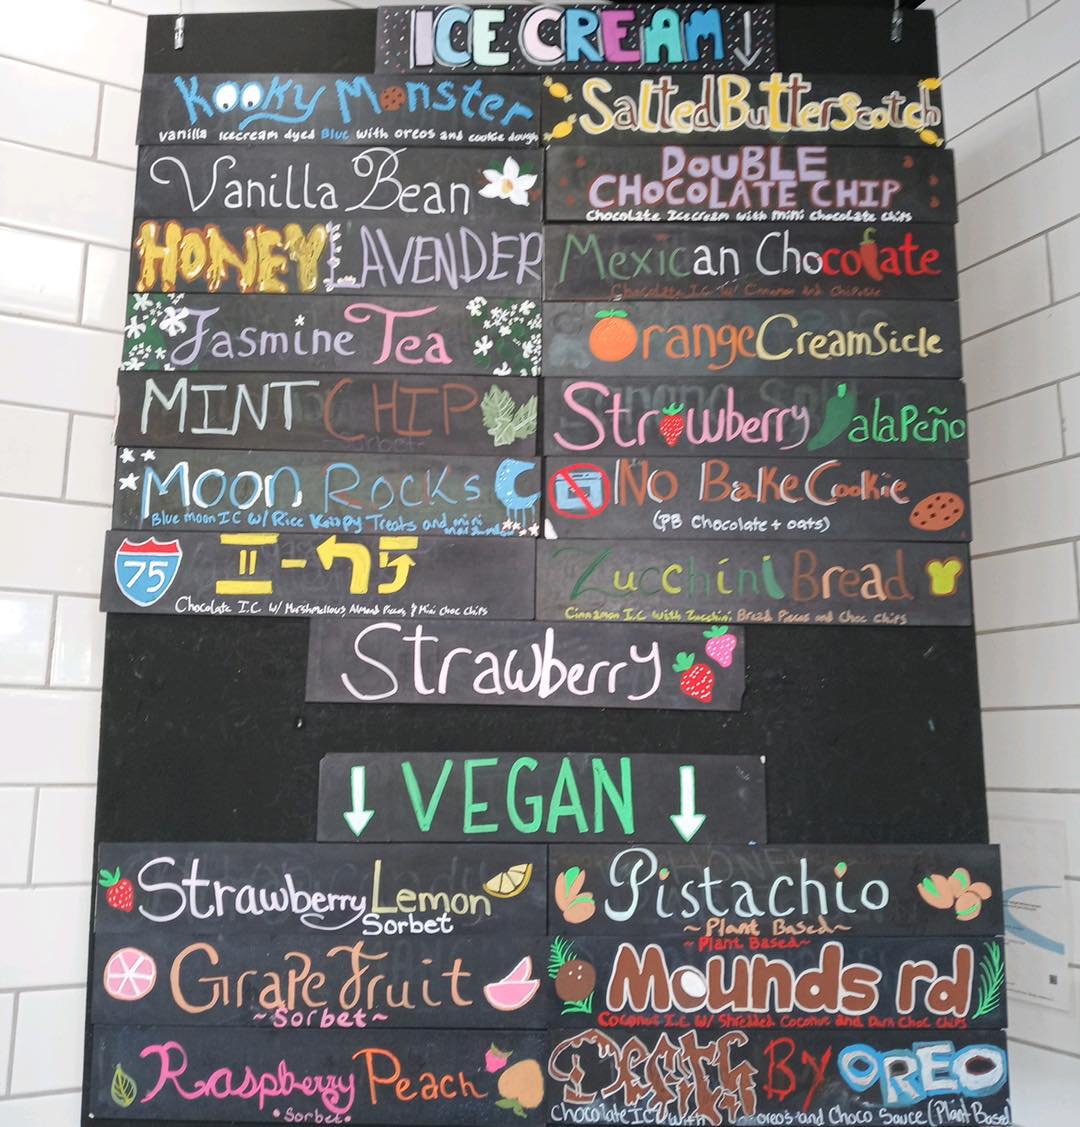 ICE CREAM ↓
Kooky Monster
Vanilla icecream dyed Blue with oreos and cookie dough
Vanilla Bean
HONEY LAVENDER
Jasmine Tea
MINT CHIP
MOON ROCKS
Blue moon I C w/ Rice Krispy Treats and mini
75
I-75
Chocolate I.C w/ Marshmellows, Almond Pieces, & Mini Choc Chips
Salted Butterscotch
DOUBLE
CHOCOLATE CHIP
Chocolate Icecream with mini chocolate chips
Mexican Chocolate
Chocolate I.C w/ Cinnamon and
Orange CreamSicle
Strawberry JalaPeño
No BaKe Cookie
(PB Chocolate + oats)
Zucchini Bread
Cinnamon I.C with Zucchini Bread Pieces and Choc Chips
Strawberry
↓ VEGAN ↓
Strawberry Lemon
Sorbet
GraPe Fruit
~Sorbet~
Raspberry Peach
•Sorbet•
Pistachio
~Plant Based~
~Plant Based~
Mounds rd
Coconut I.C w/ Shredded Coconut and Dark Choc Chips
Death By OREO
Chocolate IC with oreos and Choco Sauce (Plant Based